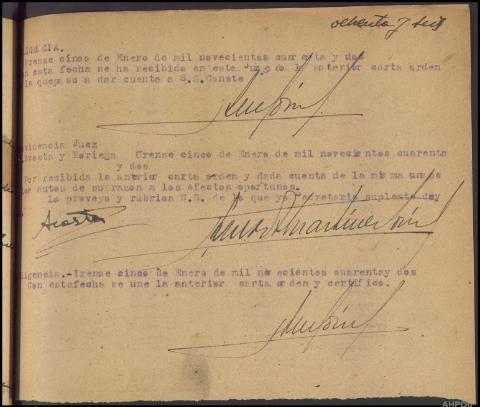 ochenta y seis
IGENCIA.
Orense cinco de Enero de mil novecientos cuarenta y dos
n esta fecha se ha recibido en este Juzgado la anterior carta orden
la que paso a dar cuenta a S.S. Conste
videncia Juez
Acosta y Noriega Orense cinco de Enero de mil novecientos cuarenta
y dos
Por recibida la anterior carta orden y dada cuenta de la misma unase
los autos de su razon a los efectos oportunos.
Lo proveyo y rubrica S.S. de lo que yo Secretario suplente doy
Acosta
ligencia.-Orense cinco de Enero de mil novecientos cuarentay dos
Con estafecha se une la anterior carta orden y certifico.